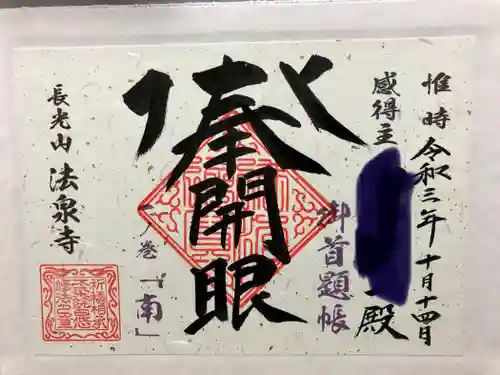 惟時 令和三年十月十四日
感得主 殿
御首題帳
奉開眼
ノ巻「南」
長光山 法泉寺